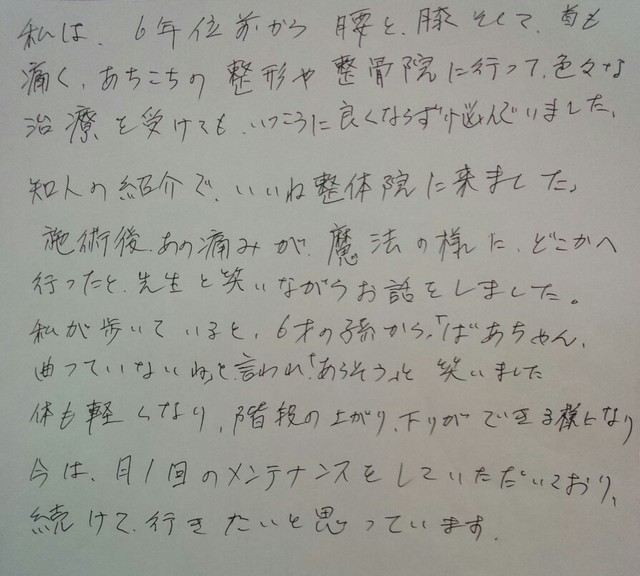 私は、6年位前から 腰と、膝そして、首も
痛く、あちこちの 整形や 整骨院に行って、色々な
治療を受けても、いっこうに良くならず悩んでいました、
知人の紹介で、いいね整体院に来ました、
施術後、あの痛みが、魔法の様に、どこかへ
行ったと、先生と笑いながらお話をしました。
私が歩いていると、6才の孫から、「ばあちゃん、
曲っていないね」と、言われ、「あらそう」と 笑いました
体も軽くなり、階段の上がり、下りができる様になり
今は、月1回のメンテナンスをしていただいており、
続けて、行きたいと思っています。